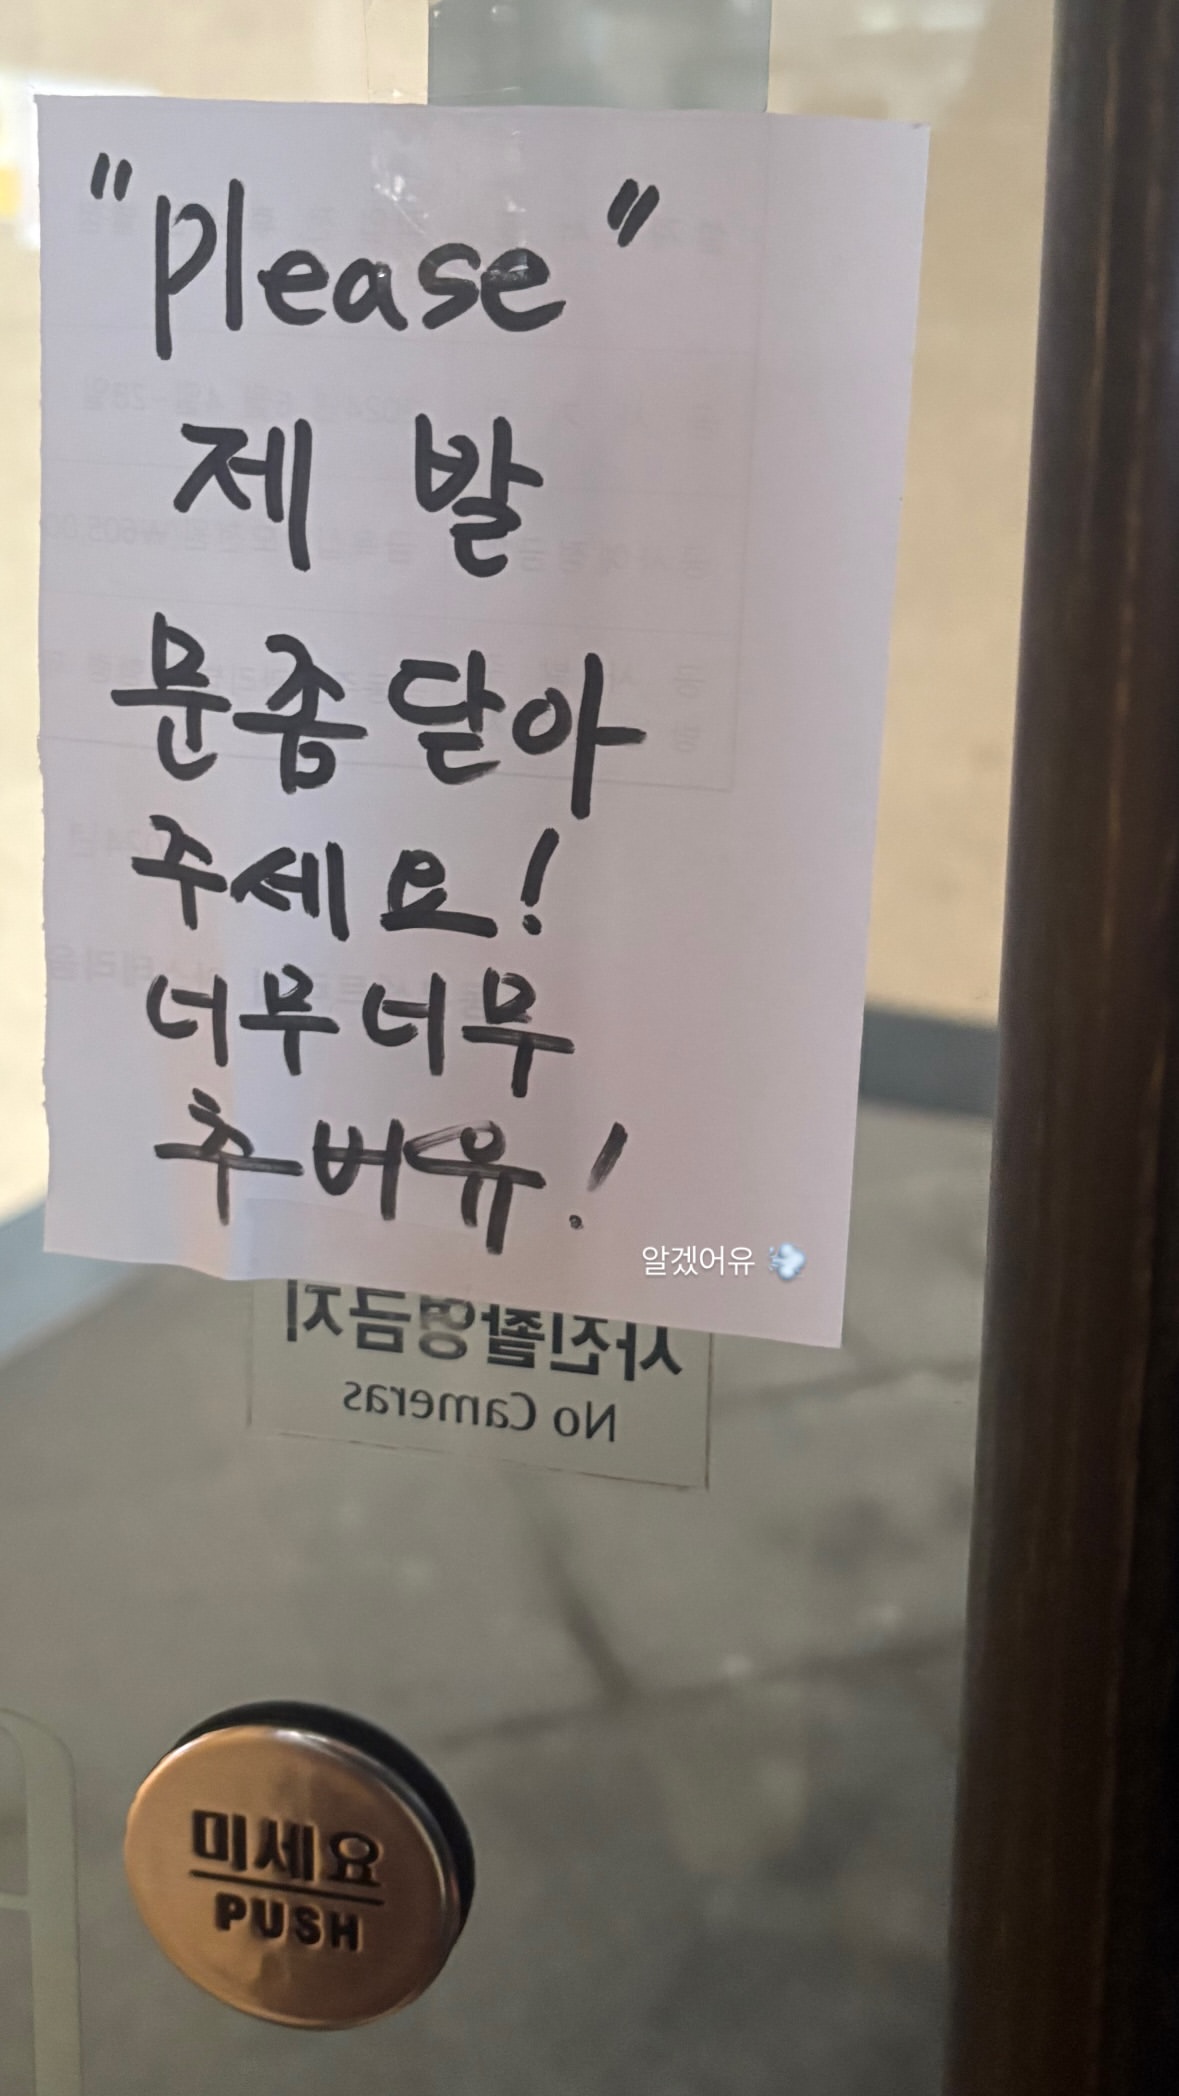 "please"
제 발
문좀닫아
주세요!
너무너무
추버유!
알겠어유
사진촬영금지
No Cameras
미세요
PUSH